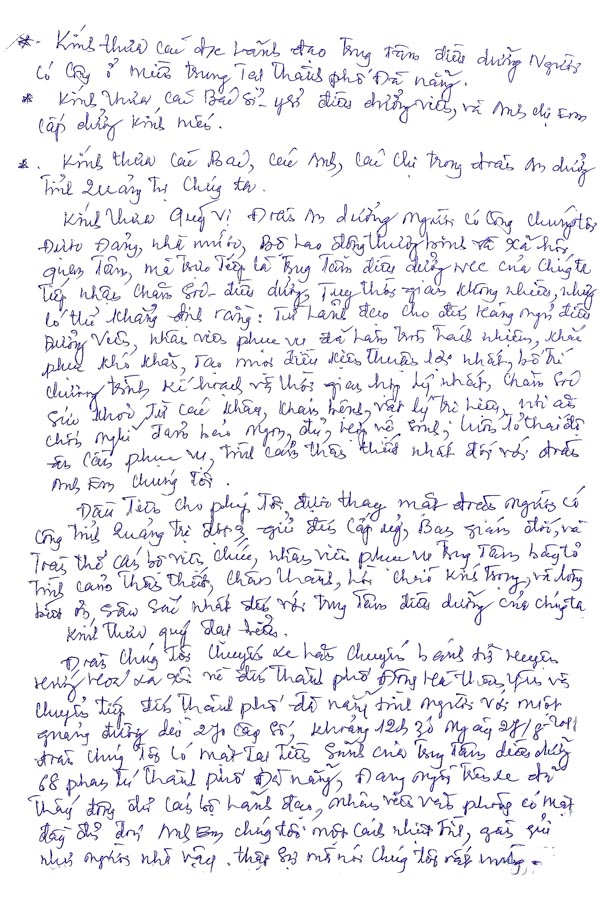 *- Kính thưa các đ/c Lãnh đạo Trung tâm điều dưỡng Người
có Công ở miền trung Tại Thành phố Đà nẵng.
* Kính thưa các Bác sĩ - y sĩ điều dưỡng viên, và Anh chị Em
cấp dưỡng kính mến.
*. Kính thưa các Bác, các Anh, các chị trong đoàn An dưỡng
Tỉnh Quảng Trị Chúng ta.
Kính thưa Quý vị Đoàn An dưỡng người có công chúng tôi
Được Đảng, nhà nước, Bộ Lao động thương binh và xã hội
quan Tâm, mà trực Tiếp là Trung Tâm điều dưỡng NCC của Chúng ta
Tiếp nhận Chăm Sóc - điều dưỡng, Tuy thời gian không nhiều, nhưng
có thể khẳng định rằng: Từ Lãnh đạo cho đến hàng ngũ điều
Dưỡng viên, nhân viên phục vụ đã làm tròn trách nhiệm, khắc
phục khó khăn, Tạo mọi điều kiện thuận lợi nhất, bố trí
chương trình, kế hoạch và thời gian hợp lý nhất, Chăm sóc
sức khỏe Từ các khâu, khám bệnh, vật lý trị liệu, nơi ăn
chốn nghỉ đảm bảo ngon, đủ, hợp vệ sinh, luôn tỏ thái độ
ân cần phục vụ, tình cảm thân thiết nhất đối với đoàn
Anh Em chúng tôi.
Đầu Tiên cho phép Tôi, được thay mặt đoàn người có
Công Tỉnh Quảng Trị gửi đến cấp uỷ, Ban giám đốc, và
Toàn thể cán bộ viên chức, nhân viên phục vụ Trung Tâm bày tỏ
tình cảm thân thiết, chân thành, lời chào kính trọng, và lòng
biết ơn sâu sắc nhất đối với trung Tâm điều dưỡng của chúng ta
Kính thưa quý đại biểu.
Đoàn Chúng Tôi chuyến xe hành Chuyến bánh từ Huyện
xa xôi về đến Thành phố Đông Hà Thân yêu và
chuyển tiếp đến thành phố Đà nẵng tình người với một
quảng đường dài 270 cây số, khoảng 12h 30 ngày 27/8
đoàn chúng Tôi có mặt Tại Tiền Sảnh của Trung Tâm điều dưỡng
68 phan Tứ Thành phố Đà nẵng, Đang ngồi Trên xe đã
Thấy đông đủ cán bộ Lãnh đạo, nhân viên văn phòng có mặt
đầy đủ đón Anh Em chúng tôi một cách nhiệt Tình, gần gũi
như người nhà vậy. thật sự mà nói Chúng Tôi rất mừng.